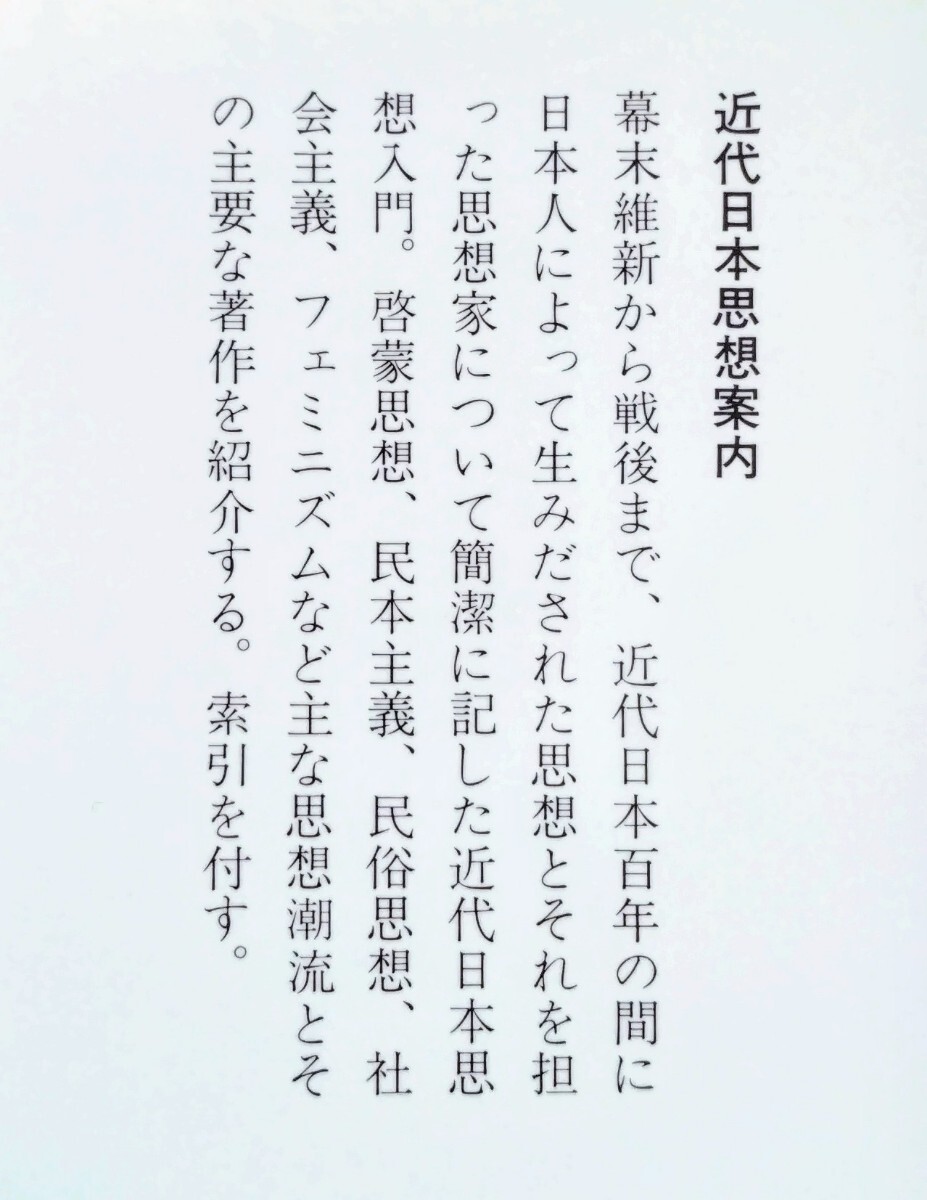 近代日本思想案内
幕末維新から戦後まで、近代日本百年の間に
日本人によって生みだされた思想とそれを担
った思想家について簡潔に記した近代日本思
想入門。啓蒙思想、民本主義、民俗思想、社
会主義、フェミニズムなど主な思想潮流とそ
の主要な著作を紹介する。索引を付す。